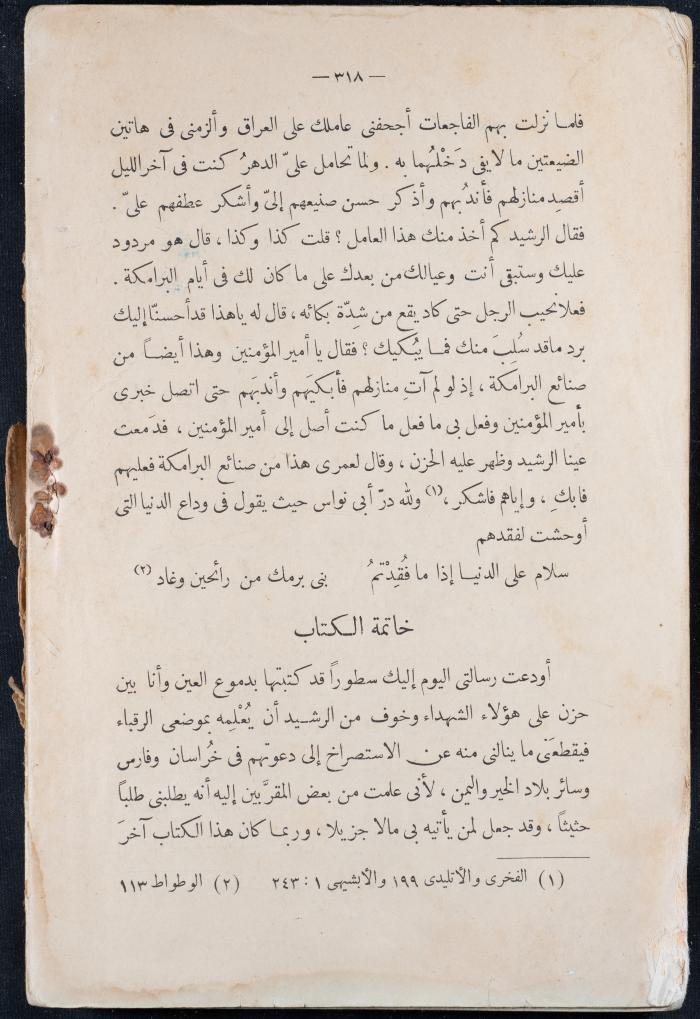 — ٣١٨ —
فلما نزلت بهم الفاجعات أجحفنى عاملك على العراق وألزمنى فى هاتين
الضيعتين ما لا يفى دَخْلُهما به . ولما تحامل علىّ الدهرُ كنت فى آخر الليل
أقصِد منازلهم فأندُبهم وأذكر حسن صنيعهم إلىّ وأشكر عطفهم علىّ .
فقال الرشيد كم أخذ منك هذا العامل ؟ قلت كذا وكذا ، قال هو مردود
عليك وستبقى أنت وعيالك من بعدك على ما كان لك فى أيام البرامكة .
فعلا نحيب الرجل حتى كاد يقع من شِدّة بكائه ، قال له ياهذا قد أحسنّا إليك
برد ماقد سُلِبَ منك فما يُبكيك ؟ فقال يا أمير المؤمنين وهذا أيضاً من
صنائع البرامكة ، إذ لو لم آتِ منازلهم فأبكيَهم وأندبَهم حتى اتصل خبرى
بأمير المؤمنين وفعل بى ما فعل ما كنت أصل إلى أمير المؤمنين ، فدَمعت
عينا الرشيد وظهر عليه الحزن ، وقال لعمرى هذا من صنائع البرامكة فعليهم
فابكِ ، وإياهم فاشكر ، (١) ولله درّ أبى نواس حيث يقول فى وداع الدنيا التى
أوحشت لفقدهم
سلام على الدنيا إذا ما فُقِدْتمُ بنى برمك من رائحين وغاد (٢)
خاتمة الكتاب
أودعت رسالتى اليوم إليك سطوراً قد كتبتها بدموع العين وأنا بين
حزن على هؤلاء الشهداء وخوف من الرشيد أن يُعْلِمه بموضعى الرقباء
فيقطعَنى ما ينالنى منه عن الاستصراخ إلى دعوتهم فى خُراسان وفارس
وسائر بلاد الخير واليمن ، لأنى علمت من بعض المقرَّبين إليه أنه يطلبنى طلباً
حثيثاً ، وقد جعل لمن يأتيه بى مالا جزيلا ، وربما كان هذا الكتاب آخرَ
(١) الفخرى والأتليدى ١٩٩ والأبشيهى ١ : ٢٤٣ (٢) الوطواط ١١٣